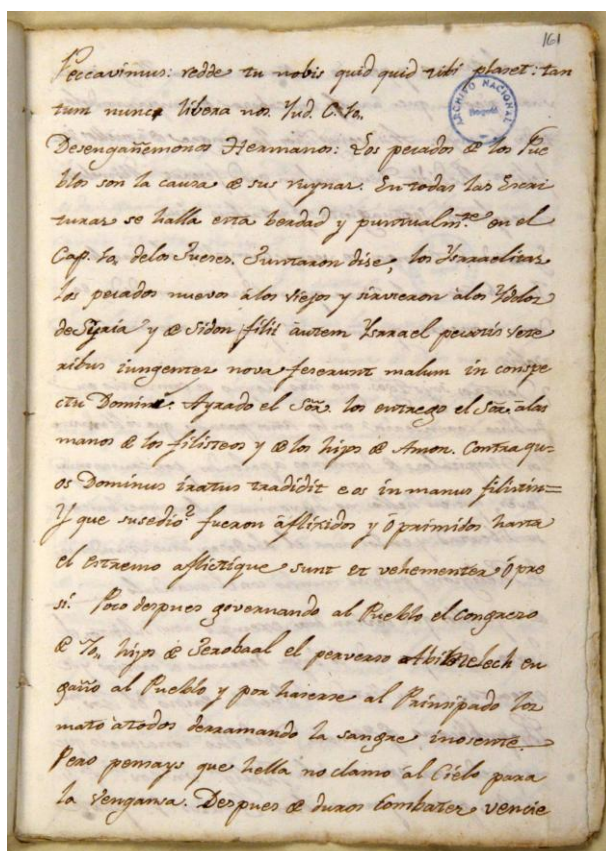 161
Peccavimus: redde tu nobis quid quid tibi plaset: tan
tum nunc libera nos. Jud. C. 10.
ARCHIVO NACIONAL
Bogotá
Desengañemonos Hermanos: Los pecados de los Pue
blos son la causa de sus ruynas. En todas las Escri
turas se halla esta berdad y puntualmte en el
Cap. 10, delos Jueses. Juntaron dise, los Ysrraelitas
los pecados nuevos álos viejos y sirvieron álos Ydolos
de Syria y de Sidon filii autem Ysrrael pecatis vete
ribus iungentes nova feserunt malum in conspe
ctu Domini. Ayrado el Sõr. los entrego el Sõr. álas
manos de los filisteos y de los hijos de Amon. Contra qu-
os Dominus iratus tradidit eos in manus filistin=
Y que susedio? fueron áfligidos y óprimidos hasta
el estremo aflictique sunt et vehementer ópre
si. Poco despues governando al Pueblo el congreso
de 70, hijos de Jerobaal el perverso Abimelech en
gañó al Pueblo y por haserse al Prinsipado los
mató átodos derramando la sangre inosente.
Pero pensays que hella no clamo ál Cielo para
la Vengansa. Despues de duros Combates vencie